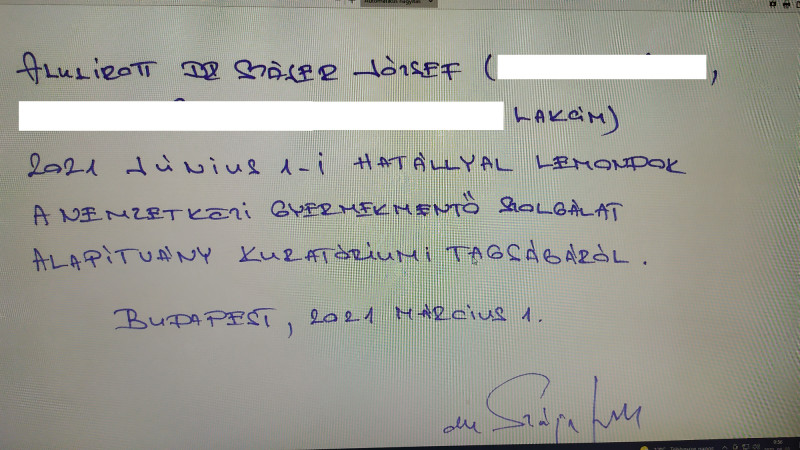 Alulírott Dr Szájer József ( ,
LAKCÍM)
2021 JÚNIUS 1-i HATÁLLYAL LEMONDOK
A NEMZETKÖZI GYERMEKMENTŐ SZOLGÁLAT
ALAPÍTVÁNY KURATÓRIUMI TAGSÁGÁRÓL.
BUDAPEST, 2021 MÁRCIUS 1.
dr Szájer